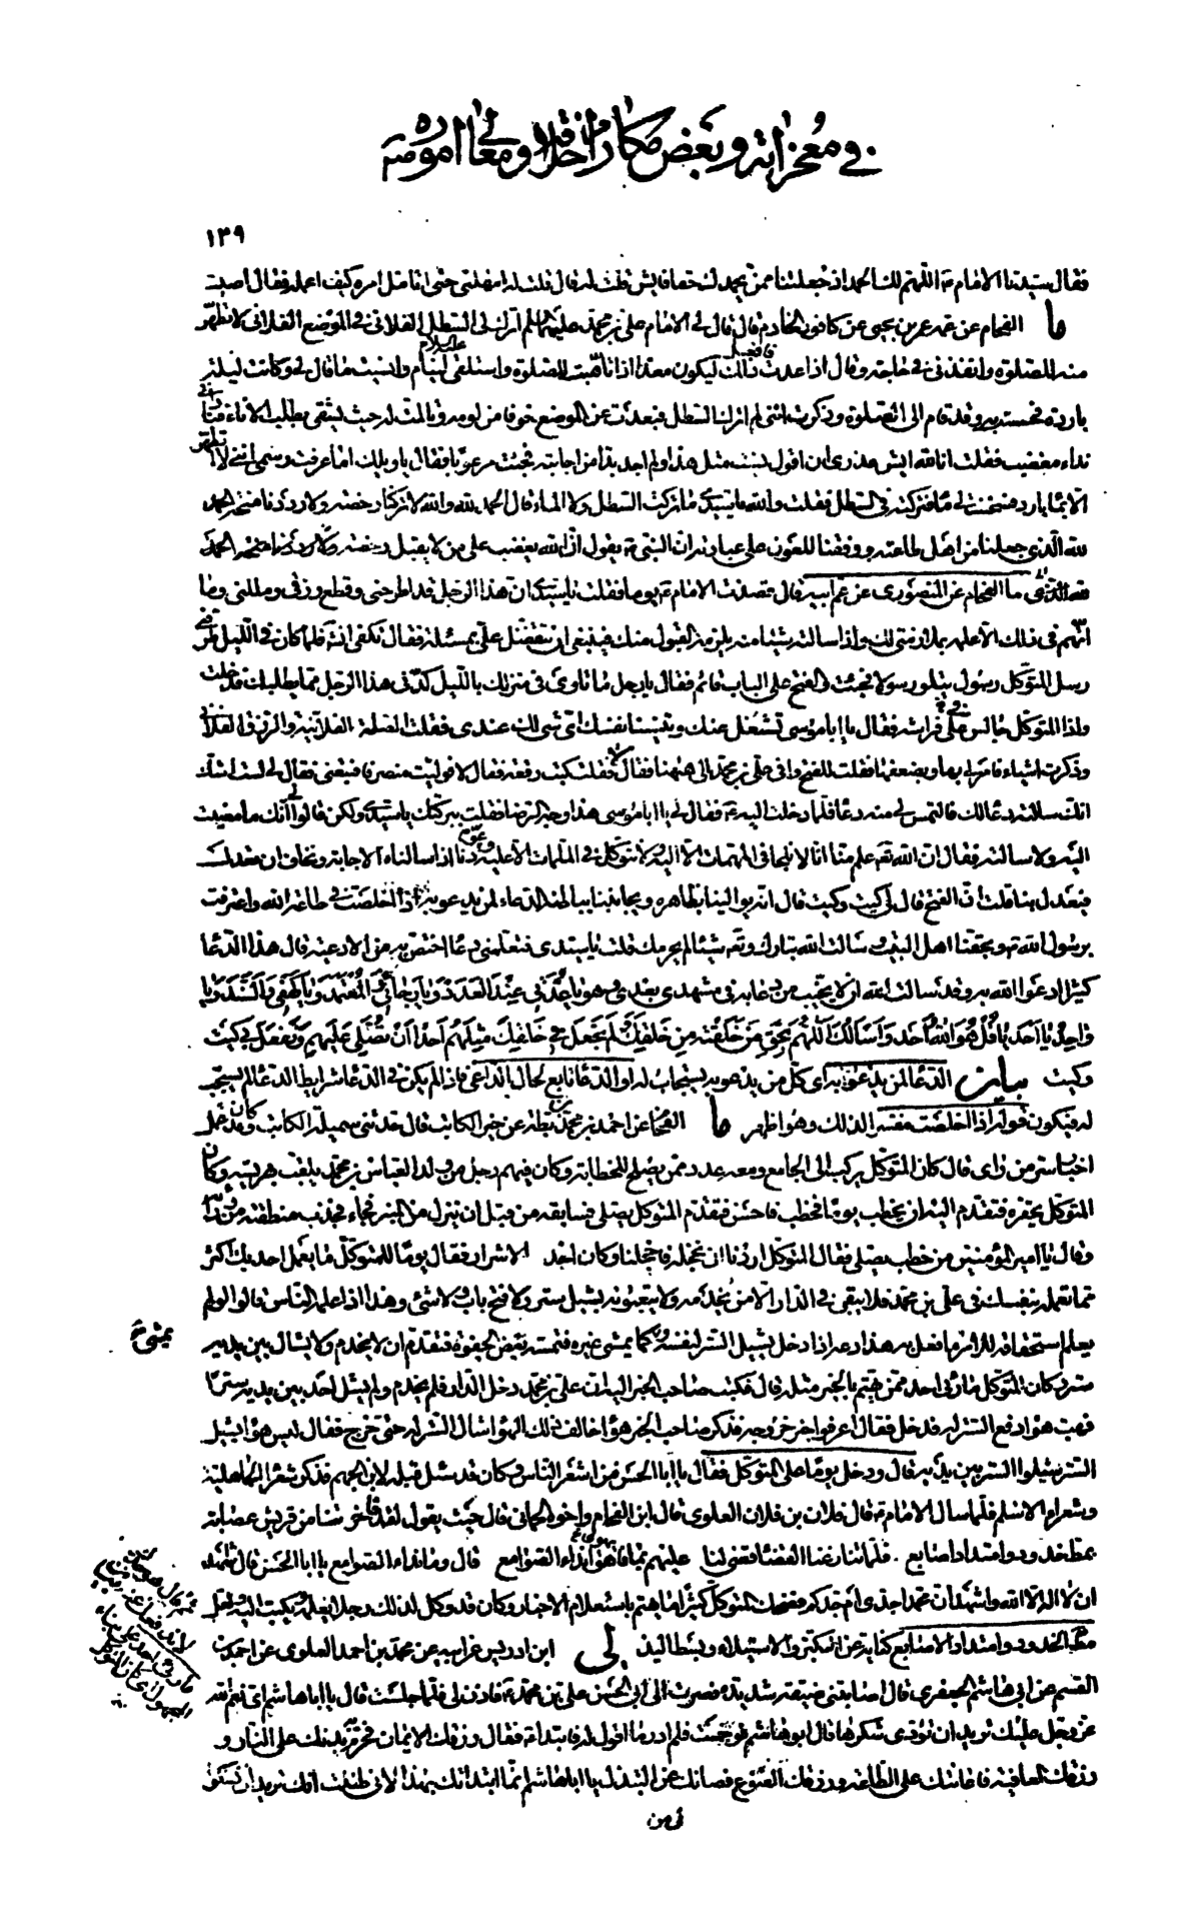 في معجزاته وبعض مكارم اخلاقه ومعالي اموره ص
١٢٩
فقال سيدنا الامام ع اللهم لك الحمد اذ جعلتنا ممن يجحد لك حقا فايش قلت له قال قلت له امهلني حتى اتامل امره كيف اعمله فقال اصبت
ما الفحام عن عمه عمر بن يحيى عن كافور الخادم قال قال لي الامام علي بن محمد عليهما السلام اترك لي السطل الفلاني في الموضع الفلاني لاتطهر
منه للصلوة وانفذني في حاجة وقال اذا عدت فافعل ذلك ليكون معدا اذا تاهبت للصلوة واستلقى عليه السلام لينام وانسيت ما قال لي وكانت ليلة
باردة فحسست به وقد قام الى الصلوة وذكرت انني لم اترك السطل فبعدت عن الموضع خوفا من لومه وتالمت له حيث يشقى بطلب الاناء فناداني
نداء مغضب فقلت انا لله ايش عذري ان اقول نسيت مثل هذا ولم اجد بدا من اجابته فجئت مرعوبا فقال يا ويلك اما عرفت رسمي انني لا اتطهر
الا بماء بارد فسخنت لي ماء فتركته في السطل فقلت والله يا سيدي ما تركت السطل ولا الماء قال الحمد لله والله لا تركنا رخصه ولا رددنا منحه الحمد
لله الذي جعلنا من اهل طاعته ووفقنا للعون على عبادته ان النبي ص يقول ان الله يغضب على من لا يقبل رخصه
ما الفحام عن المنصوري عن عم ابيه قال قصدت الامام ع يوما فقلت يا سيدي ان هذا الرجل قد اطرحني وقطع رزقي ومللني وما
اتهم في ذلك الا علمه بملازمتي لك واذا سالته شيئا منه يلزمه القبول منك فينبغي ان تتفضل علي بمسئلته فقال تكفى انشاء الله فلما كان في الليل طرقني
رسل المتوكل رسول يتلو رسولا فجئت والفتح على الباب قائم فقال يا رجل ما تاوي في منزلك بالليل كدني هذا الرجل مما يطلبك فدخلت
واذا المتوكل جالس على فراشه فقال يا ابا موسى تشغل عنك وتنسينا نفسك اي شيء لك عندي فقلت الصلة الفلانية والرزق الفلاني
وذكرت اشياء فامر لي بها وبضعفها فقلت للفتح وافى علي بن محمد الى ههنا فقال لا فقلت كتب رقعة فقال لا فوليت منصرفا فتبعني فقال لي لست اشك
انك سالته دعاء لك فالتمس لي منه دعاء فلما دخلت اليه ع فقال لي يا ابا موسى هذا وجه الرضا فقلت ببركتك يا سيدي ولكن قالوا لي انك ما مضيت
اليه ولا سالته فقال ان الله تعالى علم منا انا لا نلجا في المهمات الا اليه ولا نتوكل في الملمات الا عليه وعودنا اذا سالناه الاجابة ونخاف ان نعدل
فيعدل بنا قلت ان الفتح قال لي كيت وكيت قال انه يوالينا بظاهره ويجانبنا بباطنه الدعاء لمن يدعو به اذا اخلصت في طاعة الله واعترفت
برسول الله ص وبحقنا اهل البيت وسالت الله تبارك وتعالى شيئا لم يحرمك قلت يا سيدي فتعلمني دعاء اختص به من الادعية قال هذا الدعاء
كثيرا ادعو الله به وقد سالت الله ان لا يخيب من دعا به في مشهدي بعدي وهو يا عدتي عند العدد ويا رجائي والمعتمد ويا كهفي والسند ويا
واحد يا احد يا قل هو الله احد واسالك اللهم بحق من خلقته من خلقك ولم تجعل في خلقك مثلهم احدا ان تصلي عليهم وتفعل بي كيت
وكيت بيان الدعاء لمن يدعو به اي كل من يدعو به يستجاب له او الدعاء تابع لحال الداعي فاذا لم يكن في الدعاء شرايط الدعاء لم يستجب
له فيكون قوله اذا اخلصت مفسرا لذلك وهو اظهر ما الفحام عن احمد بن محمد بن بطة عن خير الكاتب قال حدثني سميلة الكاتب وكان قد عمل
اخبار سر من راى قال كان المتوكل يركب الى الجامع ومعه عدد ممن يصلح للخطابة وكان فيهم رجل من ولد العباس بن محمد يلقب بهريسة وكان
المتوكل يحقره فتقدم اليه ان يخطب يوما فخطب فاحسن فتقدم المتوكل يصلي فسابقه من قبل ان ينزل من المنبر فجاء فجذب منطقته من ورائه
وقال يا امير المؤمنين من خطب يصلي فقال المتوكل اردنا ان نخجله فاخجلنا وكان احد الاشرار فقال يوما للمتوكل ما يعمل احد بك اكثر
مما تعمله بنفسك في علي بن محمد فلا يبقى في الدار الا من يخدمه ولا يتعبونه بشيل ستر ولا فتح باب ولا شيء وهذا اذا علمه الناس قالوا لو لم
يعلم استحقاقه للامر ما فعل به هذا دعه اذا دخل يشيل الستر لنفسه ويمشي كما يمشي غيره فتمسه بعض الجفوة فتقدم ان لا يخدم ولا يشال بين يديه
ستر وكان المتوكل ما رئي احد ممن يهتم بالخبر مثله قال فكتب صاحب الخبر اليه ان علي بن محمد دخل الدار فلم يخدم ولم يشل احد بين يديه سترا
فهب هواء رفع الستر له فدخل فقال اعرفوا خبر خروجه فذكر صاحب الخبر هواء خالف ذلك الهواء شال الستر له حتى خرج فقال ليس نريد هواء يشيل
الستر شيلوا الستر بين يديه قال ودخل يوما على المتوكل فقال يا ابا الحسن من اشعر الناس وكان قد سئل قبله لابن الجهم فذكر شعراء الجاهلية
وشعراء الاسلم فلما سال الامام ع قال فلان بن فلان العلوي قال ابن الفحام واخوه الحماني قال حيث يقول لقد فاخرتنا من قريش عصابة
بمط خدود وامتداد اصابع . فلما تنازعنا القضاء قضى لنا عليهم بما فاهوا نداء الصوامع قال وما نداء الصوامع يا ابا الحسن قال اشهد
ان لا اله الا الله واشهد ان محمدا جدي ام جدكم فضحك المتوكل كثيرا
مط الخدود وامتداد الاصابع كناية عن التكبر والاستيلاء وبسط اليد لي ابن ادريس عن ابيه عن محمد بن احمد العلوي عن احمد بن
القسم عن ابي هاشم الجعفري قال اصابتني ضيقة شديدة فصرت الى ابي الحسن علي بن محمد ع فاذن لي فلما جلست قال يا ابا هاشم اي نعم الله
عز وجل عليك تريد ان تؤدي شكرها قال ابو هاشم فوجمت فلم ادر ما اقول له فابتدا ع فقال رزقك الايمان فحرم بدنك على النار و
رزقك العافية فاعانتك على الطاعة ورزقك القنوع فصانك عن التبذل يا ابا هاشم انما ابتداتك بهذا لاني ظننت انك تريد ان تشكو
لي من